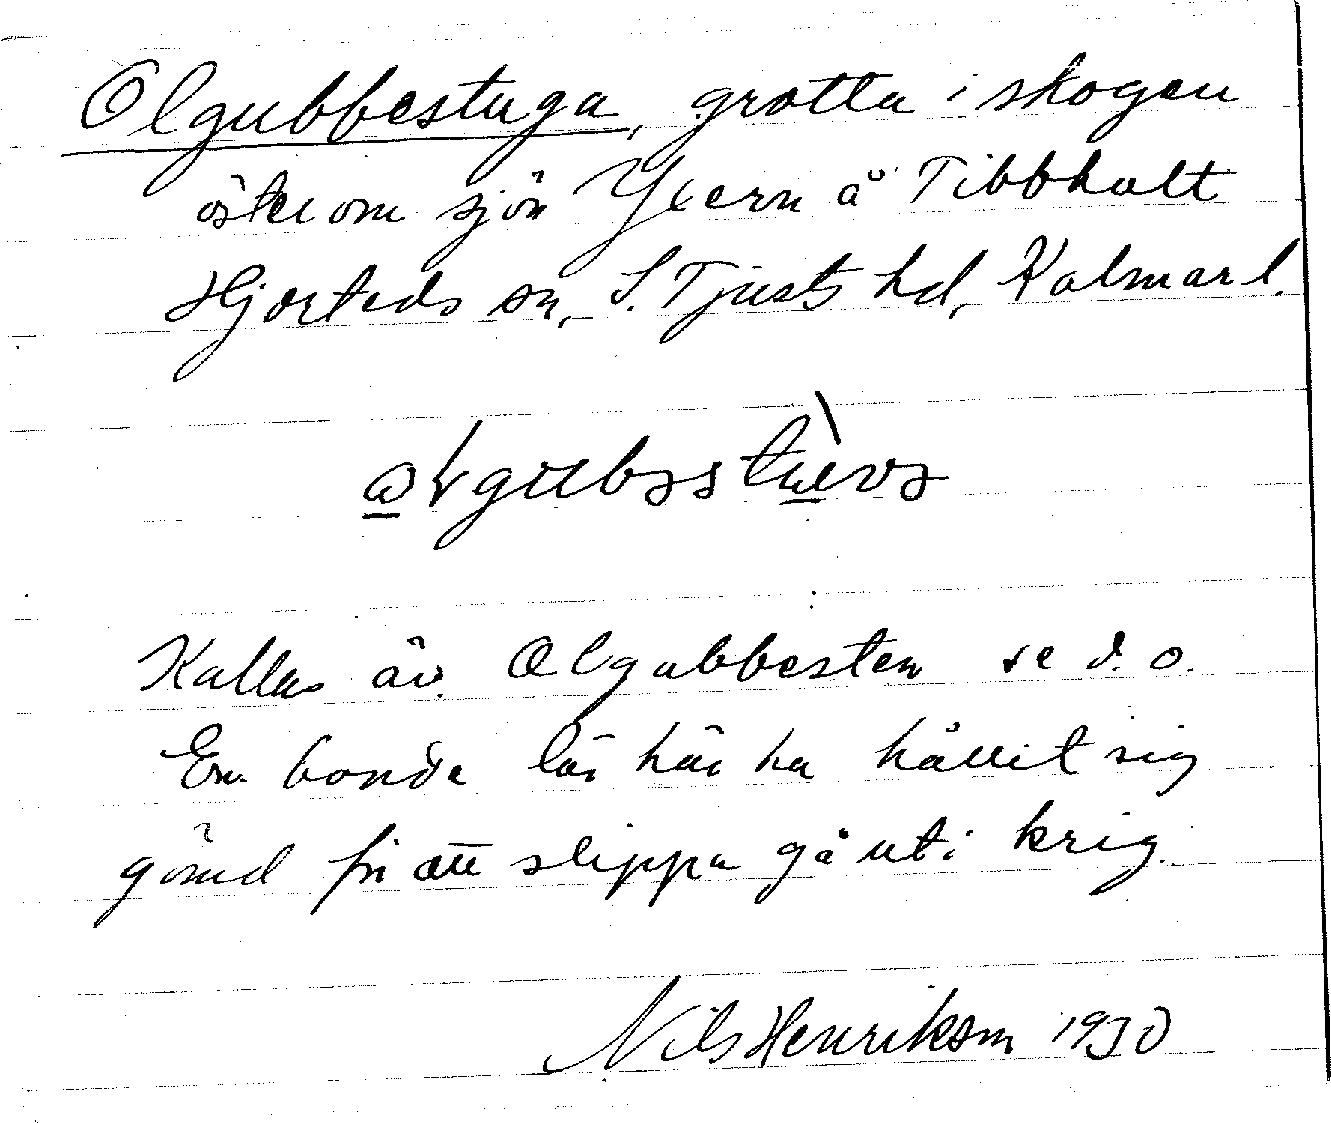 Olgubbestuga, grotta i skogen
öster om sjön Yxern å Tibbhult
Hjorteds sn, S. Tjusts hd, Kalmar l.
Kallas äv. Olgubbesten se d. o.
En bonde lär här ha hållit sig
gömd för att slippa gå ut i krig.
Nils Henriksson 1930